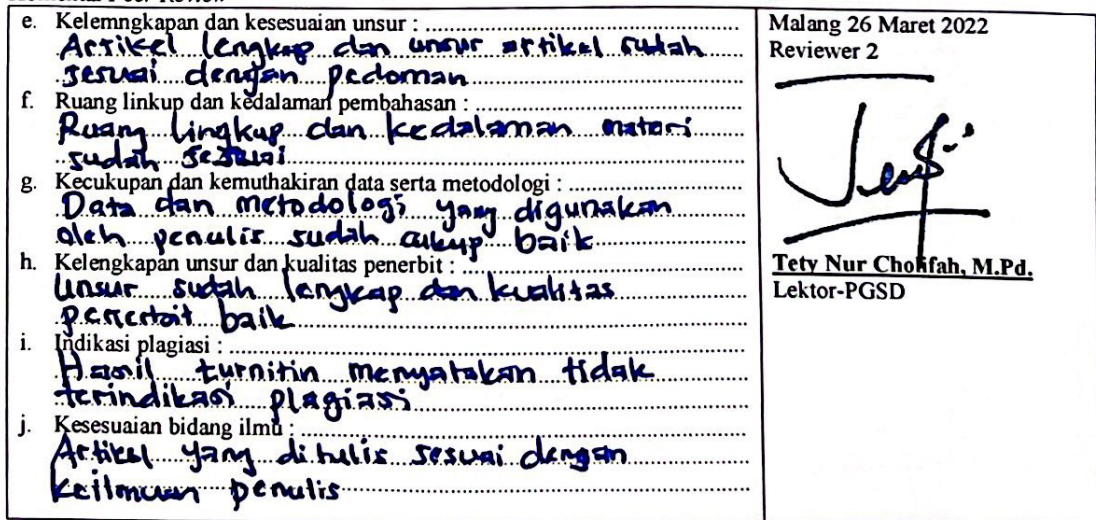 Komentar Peer Review
e. Kelemngkapan dan kesesuaian unsur :
Artikel lengkap dan unsur artikel sudah
sesuai dengan pedoman
f. Ruang linkup dan kedalaman pembahasan :
Ruang lingkup dan kedalaman materi
sudah sesuai
g. Kecukupan dan kemuthakiran data serta metodologi :
Data dan metodologi yang digunakan
oleh penulis sudah cukup baik
h. Kelengkapan unsur dan kualitas penerbit :
Unsur sudah lengkap dan kualitas
penerbit baik
i. Indikasi plagiasi :
Hasil turnitin menyatakan tidak
terindikasi plagiasi
j. Kesesuaian bidang ilmu :
Artikel yang ditulis sesuai dengan
keilmuan penulis
Malang 26 Maret 2022
Reviewer 2
Tety Nur Cholifah, M.Pd.
Lektor-PGSD